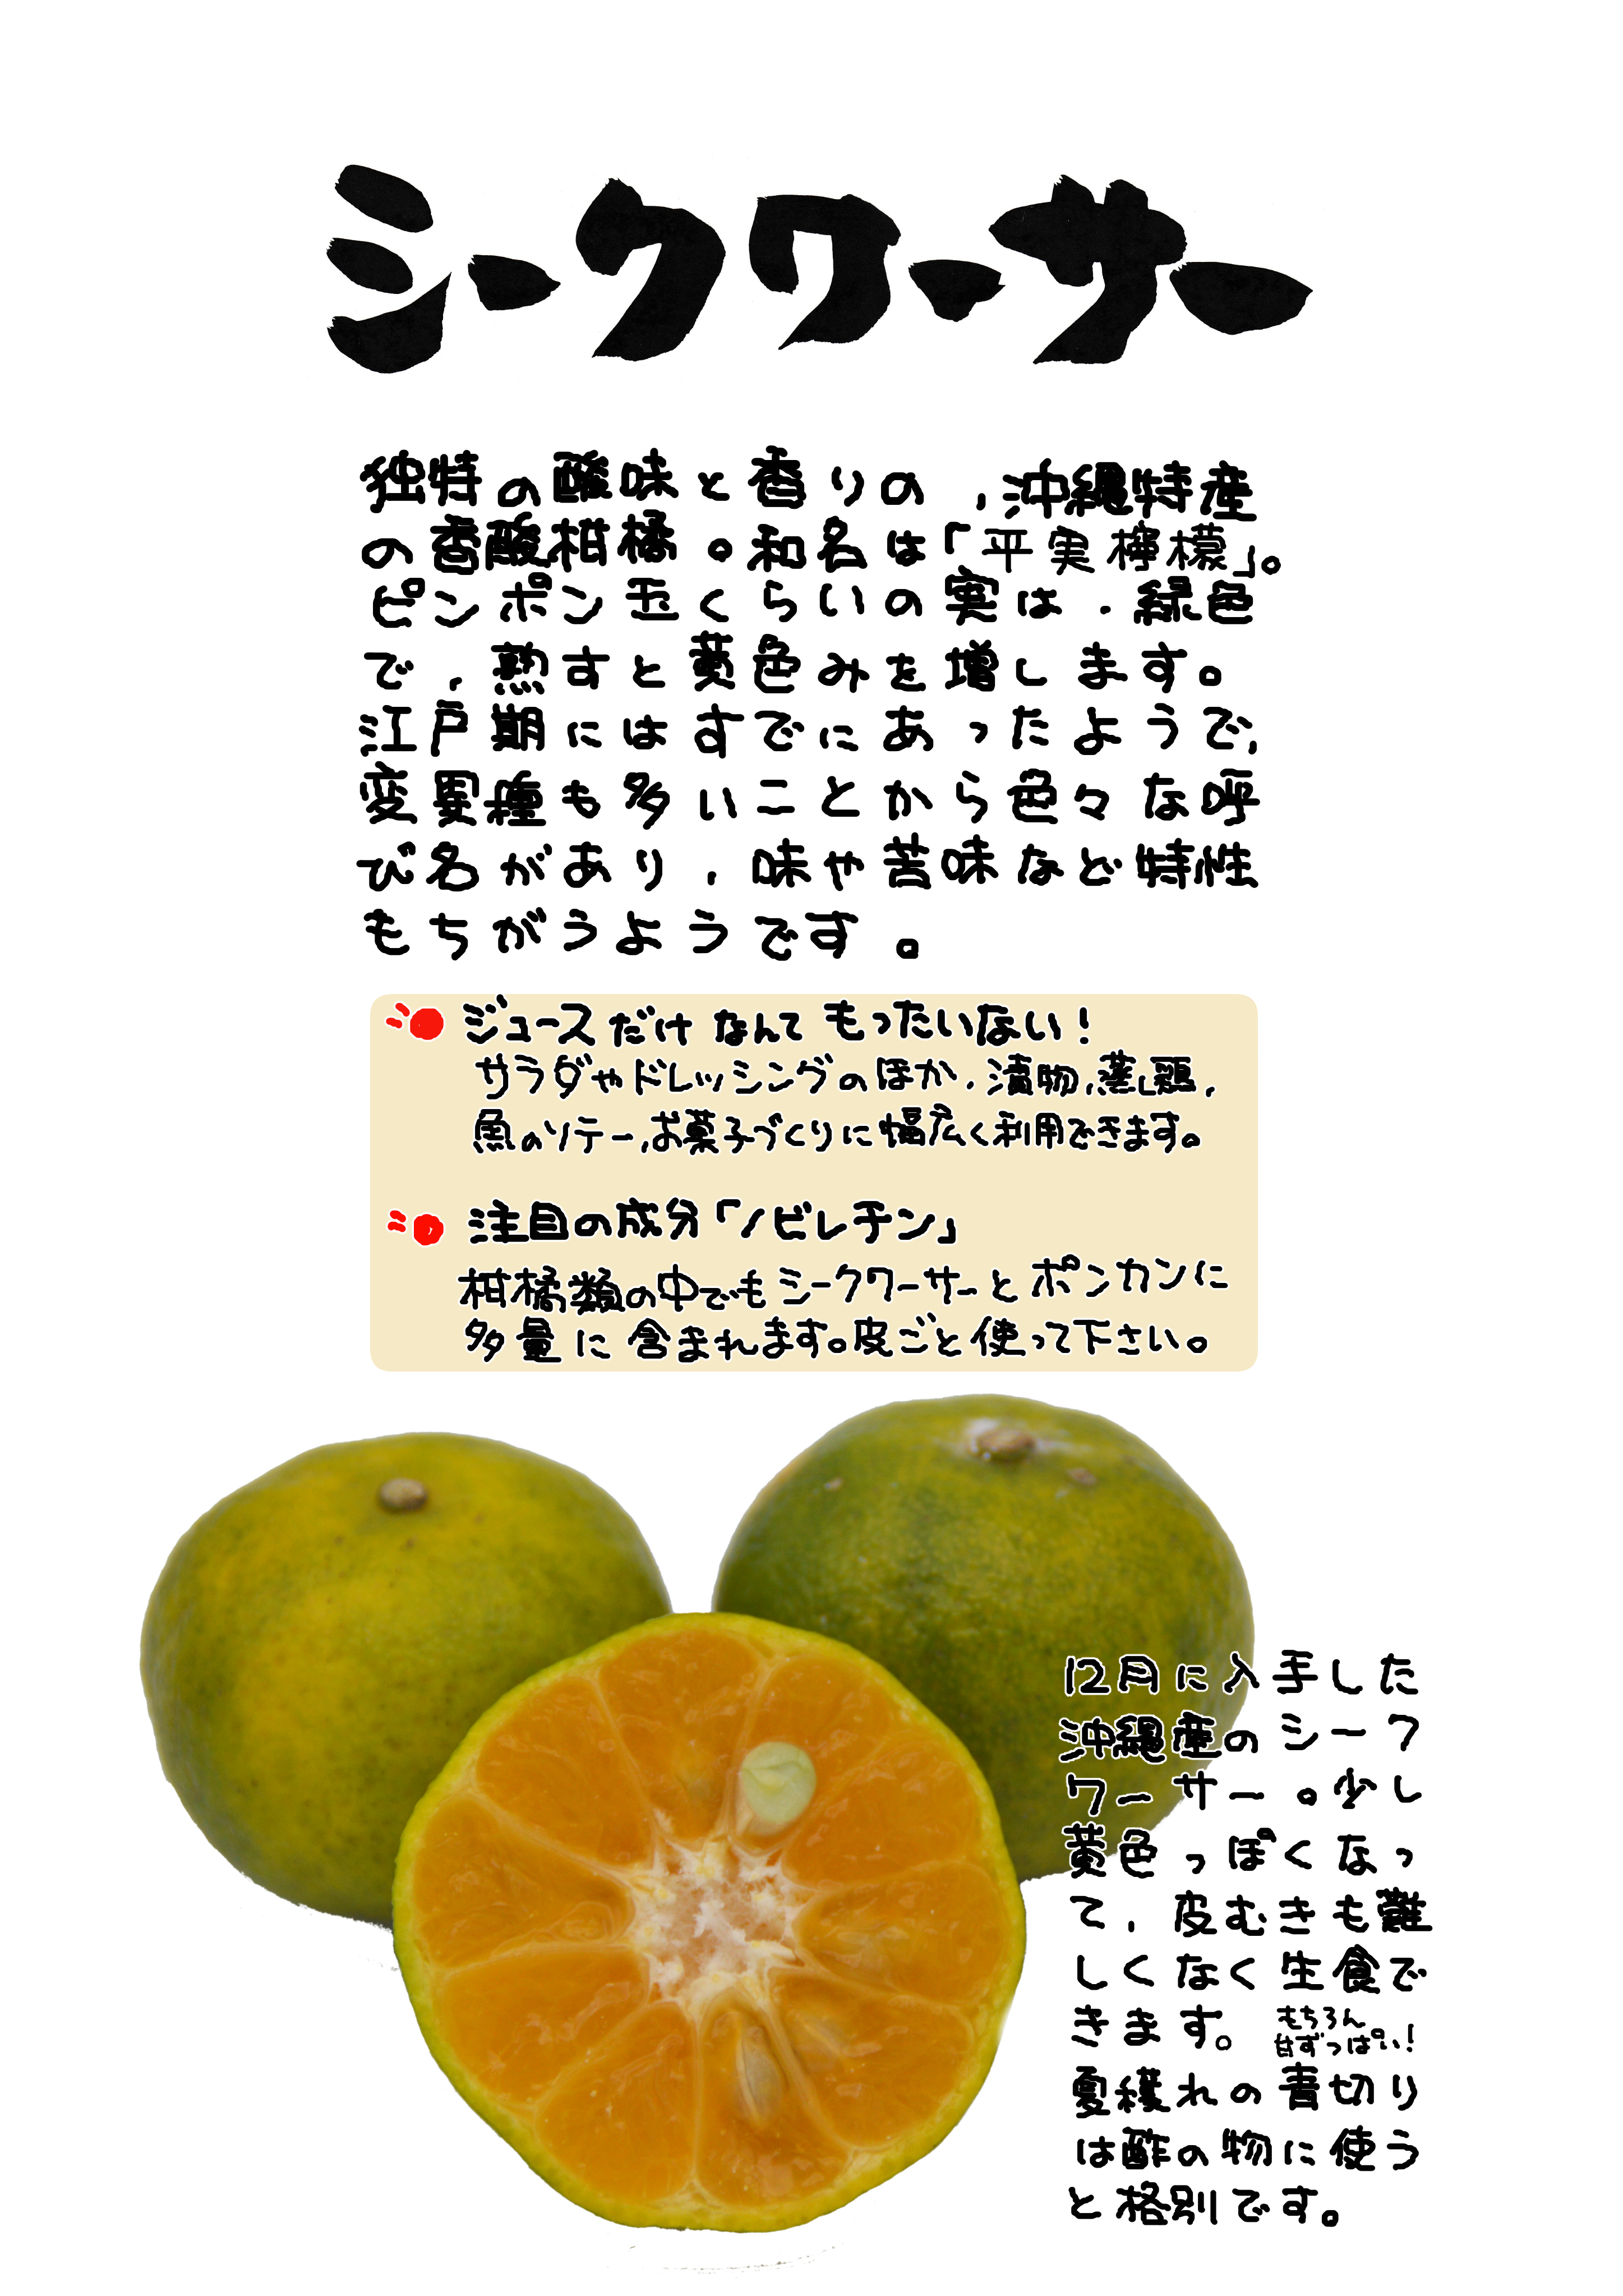 シークワーサー
独特の酸味と香りの、沖縄特産
の香酸柑橘。和名は「平実檸檬」。
ピンポン玉くらいの実は、緑色
で、熟すと黄色みを増します。
江戸期にはすでにあったようで、
変異種も多いことから色々な呼
び名があり、味や苦味など特性
もちがうようです。
ジュースだけなんてもったいない！
サラダやドレッシングのほか、漬物、蒸し鶏、
魚のソテー、お菓子づくりに幅広く利用できます。
注目の成分「ノビレチン」
柑橘類の中でもシークワーサーとポンカンに
多量に含まれます。皮ごと使って下さい。
12月に入手した
沖縄産のシーク
ワーサー。少し
黄色っぽくなっ
て、皮むきも難
しくなく生食で
きます。もちろん
甘ずっぱい！
夏穫れの青切り
は酢の物に使う
と格別です。